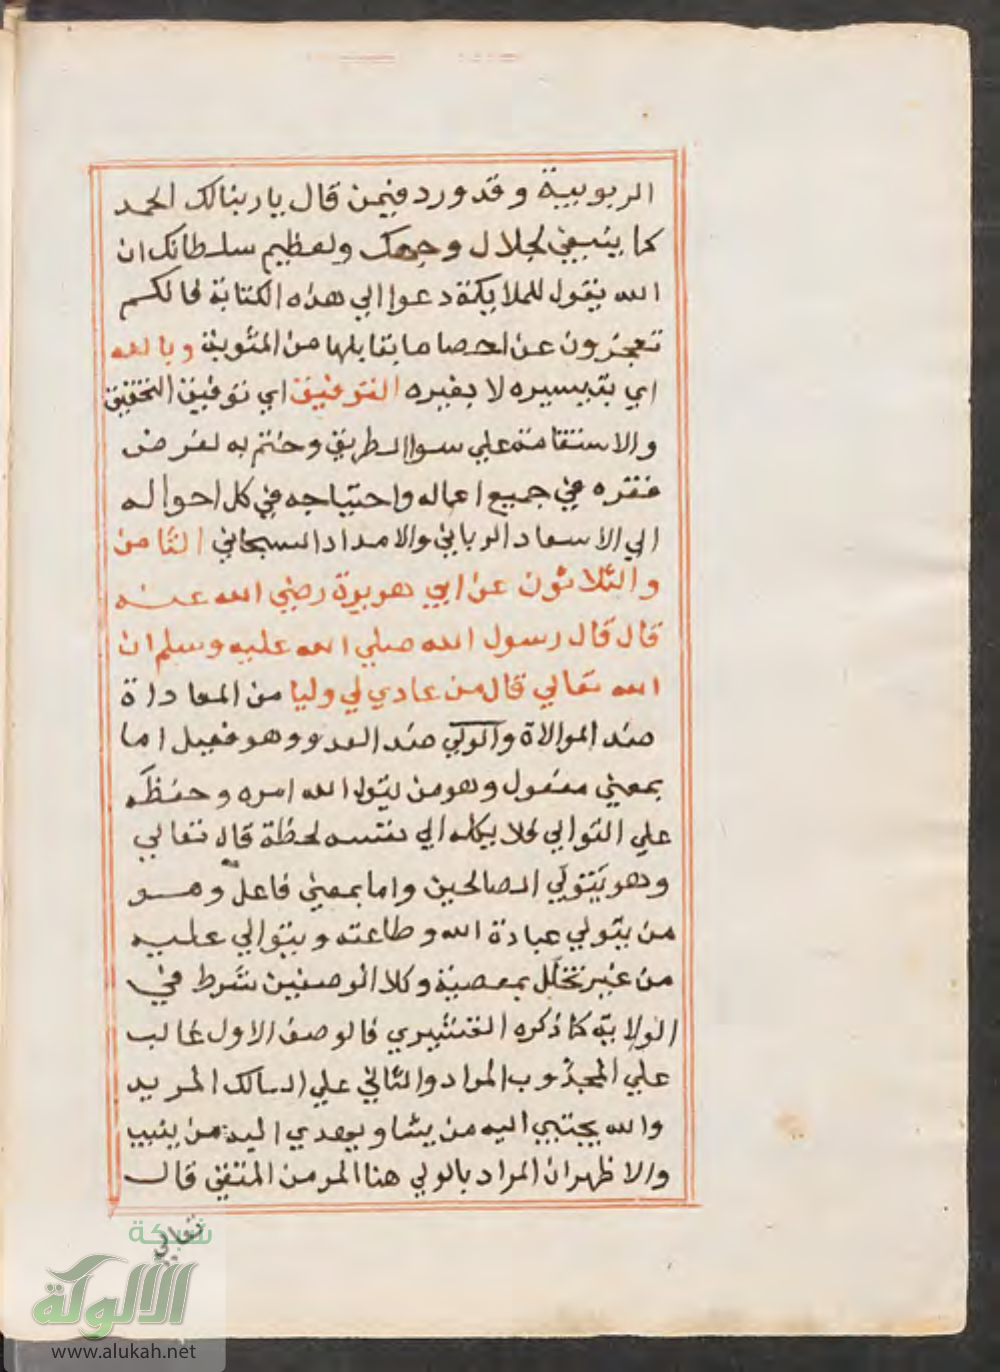 الربوبية وقد ورد فيمن قال يا ربنا لك الحمد
كما ينبغي لجلال وجهك ولعظيم سلطانك ان
الله يقول للملايكة دعوا الي هذه الكتابة فانكم
تعجزون عن احصا ما يقابلها من المثوبة وبالله
اي بتيسيره لا بغيره التوفيق اي توفيق التحقيق
والاستقامة علي سوا الطريق وختم به لغرض
فقره في جميع اعماله واحتياجه في كل احواله
الي الاسعاد الرباني والامداد السبحاني الثامن
والثلاثون عن ابي هريرة رضي الله عنه
قال قال رسول الله صلي الله عليه وسلم ان
الله تعالي قال من عادي لي وليا من المعاداة
ضد الموالاة والولي ضد العدو وهو فعيل اما
بمعني مفعول وهو من يتولي الله امره وحفظه
علي التوالي فلا يكله الي نفسه لحظة قال تعالي
وهو يتولي الصالحين واما بمعني فاعل وهو
من يتولي عبادة الله وطاعته ويتوالي عليه
من غير تخلل بمعصية وكلا الوصفين شرط في
الولاية كما ذكره القشيري فالوصف الاول غالب
علي المجذوب المراد والثاني علي السالك المريد
والله يجتبي اليه من يشا ويهدي اليه من ينيب
والاظهر ان المراد بالولي هنا المومن المتقي قال
تعالي
شبكة
الألوكة
www.alukah.net